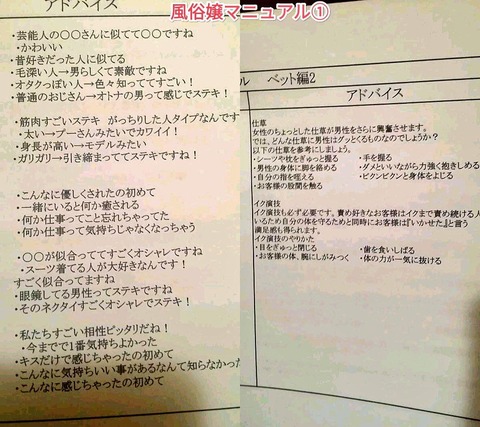 風俗嬢マニュアル①
アドバイス
・芸能人の〇〇さんに似てて〇〇ですね
・かわいい
・昔好きだった人に似てる
・毛深い人→男らしくて素敵ですね
・オタクっぽい人→色々知っててすごい！
・普通のおじさん→オトナの男って感じでステキ！
・筋肉すごいステキ がっちりした人タイプなんです
・太い→プーさんみたいでカワイイ！
・身長が高い→モデルみたい
・ガリガリ→引き締まっててステキですね！
・こんなに優しくされたの初めて
・一緒にいると何か癒される
・何か仕事ってこと忘れちゃってた
・何か仕事って気持ちじゃなくなっちゃう
・〇〇が似合っててすごくオシャレですね
・スーツ着てる人が大好きなんです！
すごく似合ってますね
・眼鏡してる男性ってステキですね
・そのネクタイすごくオシャレでステキ！
・私たちすごい相性ピッタリだね！
・今までで1番気持ちよかった
・キスだけで感じちゃったの初めて
・こんなに気持ちいい事があるなんて知らなかった
・こんなに感じちゃったの初めて
ル ベット編2
アドバイス
仕草
女性のちょっとした仕草が男性をさらに興奮させます。
では、どんな仕草に男性はグッとくるものなのでしょうか？
以下の仕草を参考にしましょう。
・シーツや枕をぎゅっと握る ・手を握る
・男性の身体に脚を絡める ・ダメといいながら力強く抱きしめる
・自分の指を咥える ・ビクンビクンと身体をよじる
・お客様の股間を触る
イク演技
イク演技も必ず必要です。責め好きなお客様はイクまで責め続ける人
いるため自分の体を守るためと同時にお客様は『いかせた』と言う
満足感も得られます。
イク演技のやりかた
・目をぎゅっと閉じる ・歯を食いしばる
・お客様の体、腕にしがみつく ・体の力が一気に抜ける